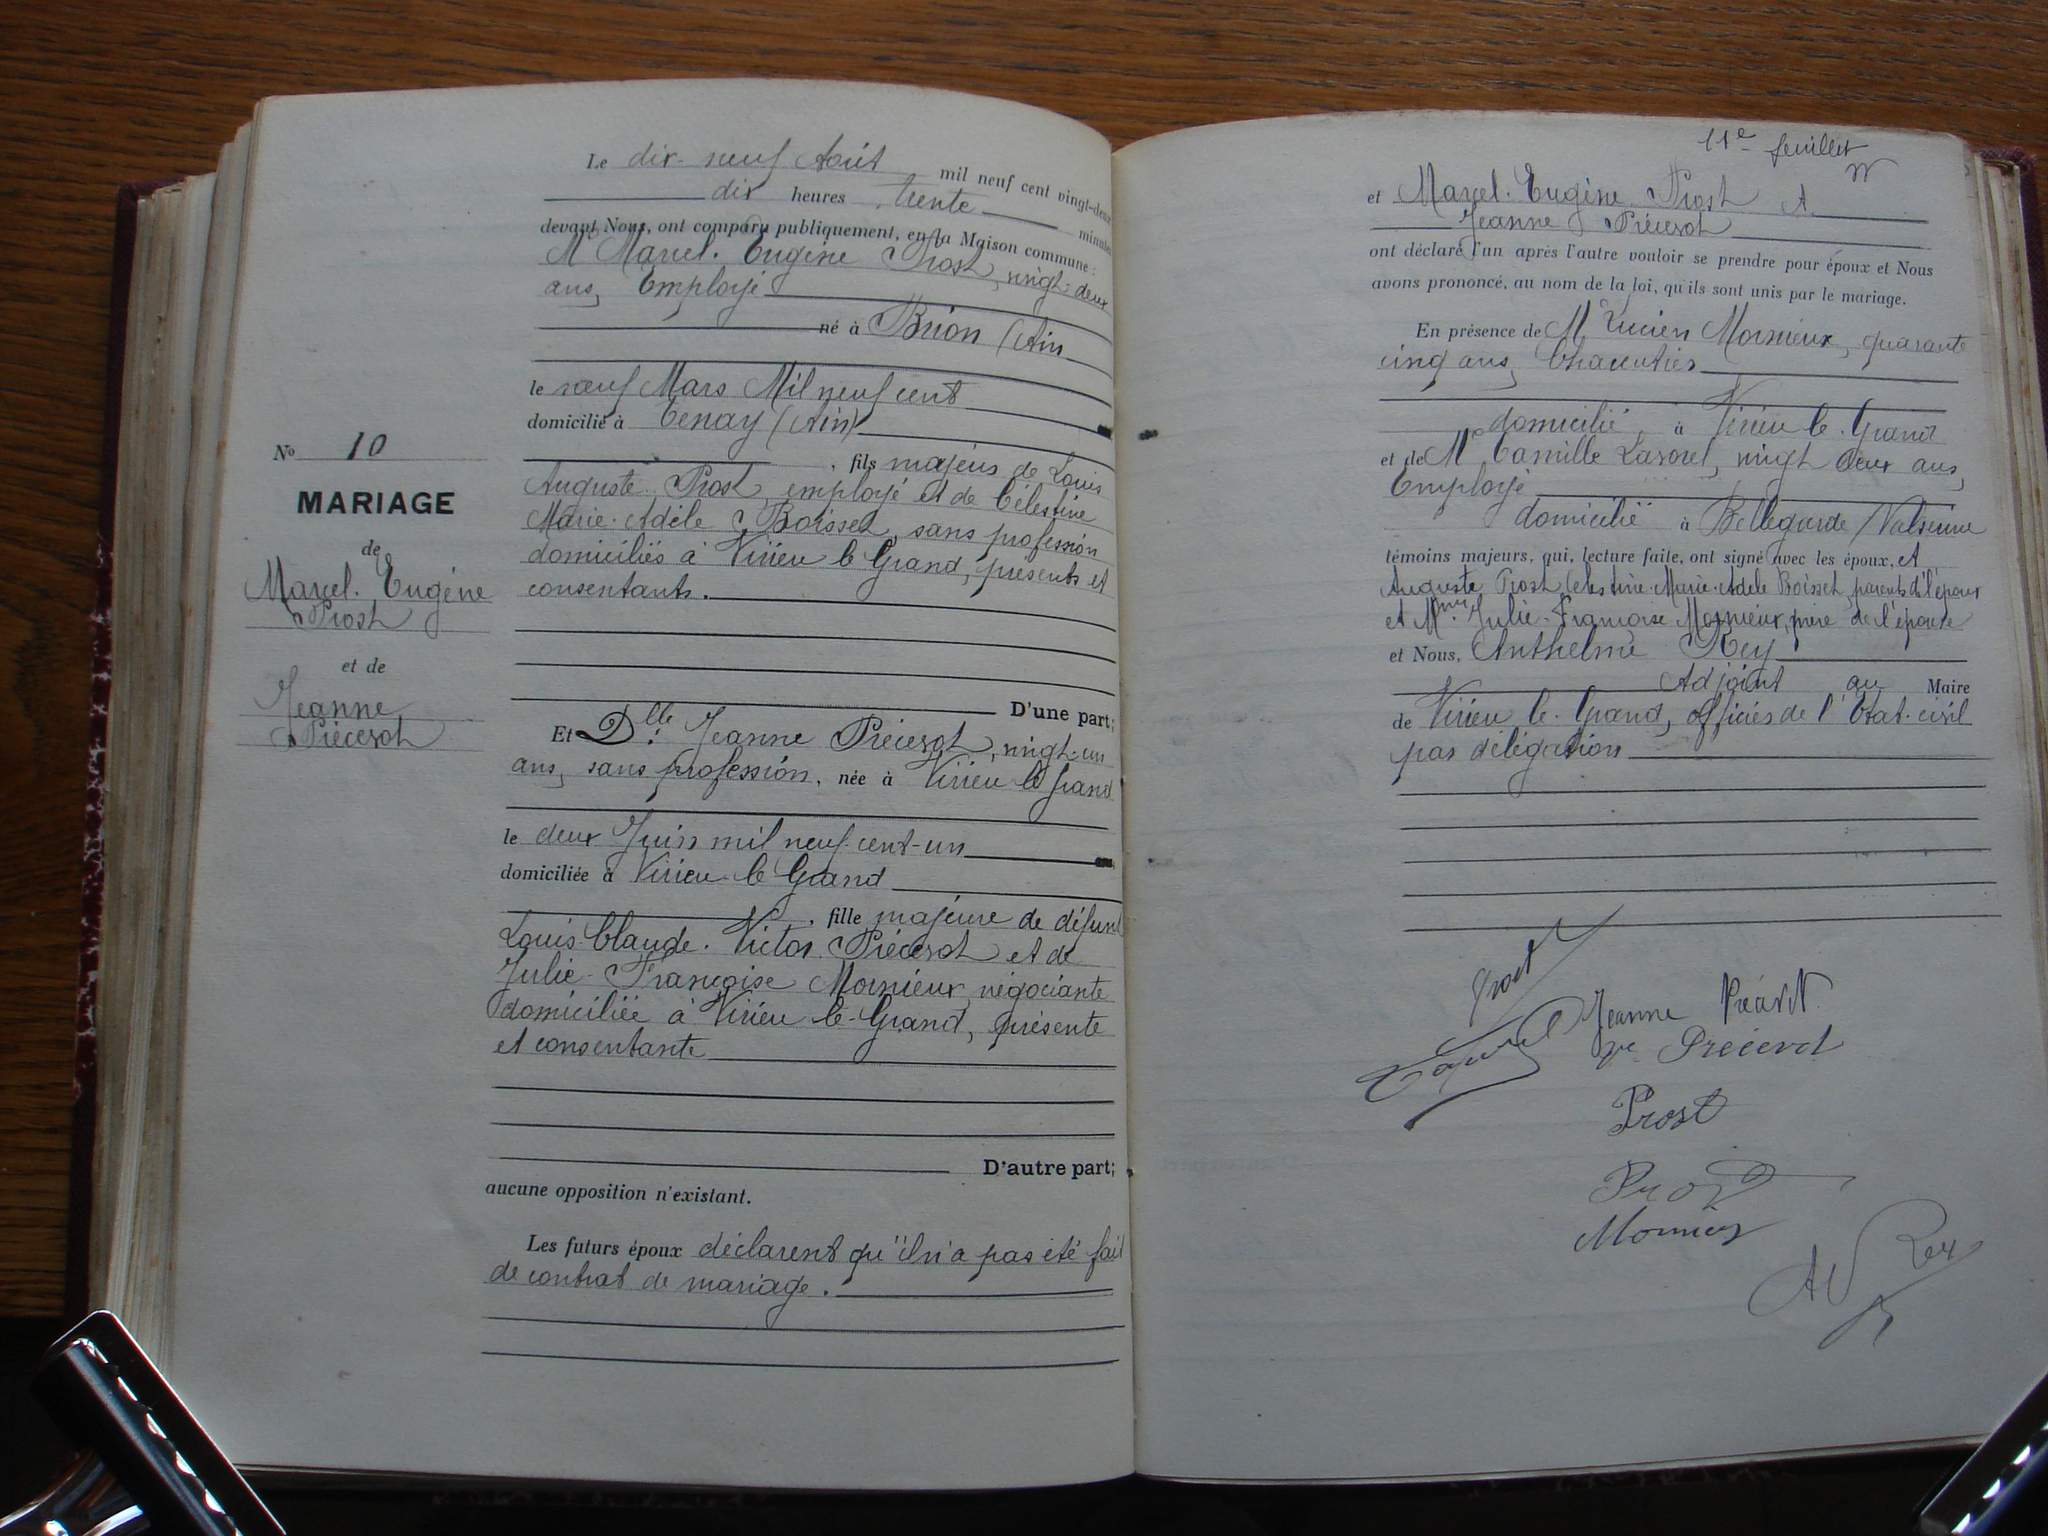 N° 10
MARIAGE
de
Marcel. Eugène
Prost
et de
Jeanne
Précesot
Le dix-neuf Août mil neuf cent vingt-deux
dix heures trente minutes
devant Nous, ont comparu publiquement, en la Maison commune :
Mr Marcel. Eugène Prost, vingt-deux
ans, Employé
né à Brion (Ain
le neuf Mars Mil neuf cent
domicilié à Tenay (Ain)
, fils majeur de Louis
Auguste Prost, employé et de Célestine
Marie-Adèle Boisset, sans profession
domiciliés à Virieu le Grand, présents et
consentants.
D'une part;
Et Dlle Jeanne Précesot, vingt-un
ans, sans profession, née à Virieu le Grand
le deux Juin mil neuf cent-un
domiciliée à Virieu-le Grand
, fille majeure de défunt
Louis-Claude. Victor Précesot et de
Julie-Françoise Mornieux, négociante
domiciliée à Virieu-le-Grand, présente
et consentante
D'autre part;
aucune opposition n'existant.
Les futurs époux déclarent qu'il n'a pas été fait
de contrat de mariage.
11e feuillet
et Marcel. Eugène Prost et
Jeanne Précesot
ont déclaré l'un après l'autre vouloir se prendre pour époux et Nous
avons prononcé, au nom de la loi, qu'ils sont unis par le mariage.
En présence de Mr Lucien Mornieux, quarante
cinq ans, Charcutier
domicilié à Virieu-le-Grand
et de Mr Camille Lavorel, vingt deux ans,
Employé
domicilié à Bellegarde /Valserine
témoins majeurs, qui, lecture faite, ont signé avec les époux, et
Auguste Prost, Célestine-Marie-Adèle Boisset, parents de l'époux
et Mme Julie-Françoise Mornieux, mère de l'épouse
et Nous, Anthelme Rey
Adjoint au Maire
de Virieu-le-Grand, officier de l'Etat-civil
par délégation
Prost
Jeanne
Lavorel
Prost
Prost
A Rey